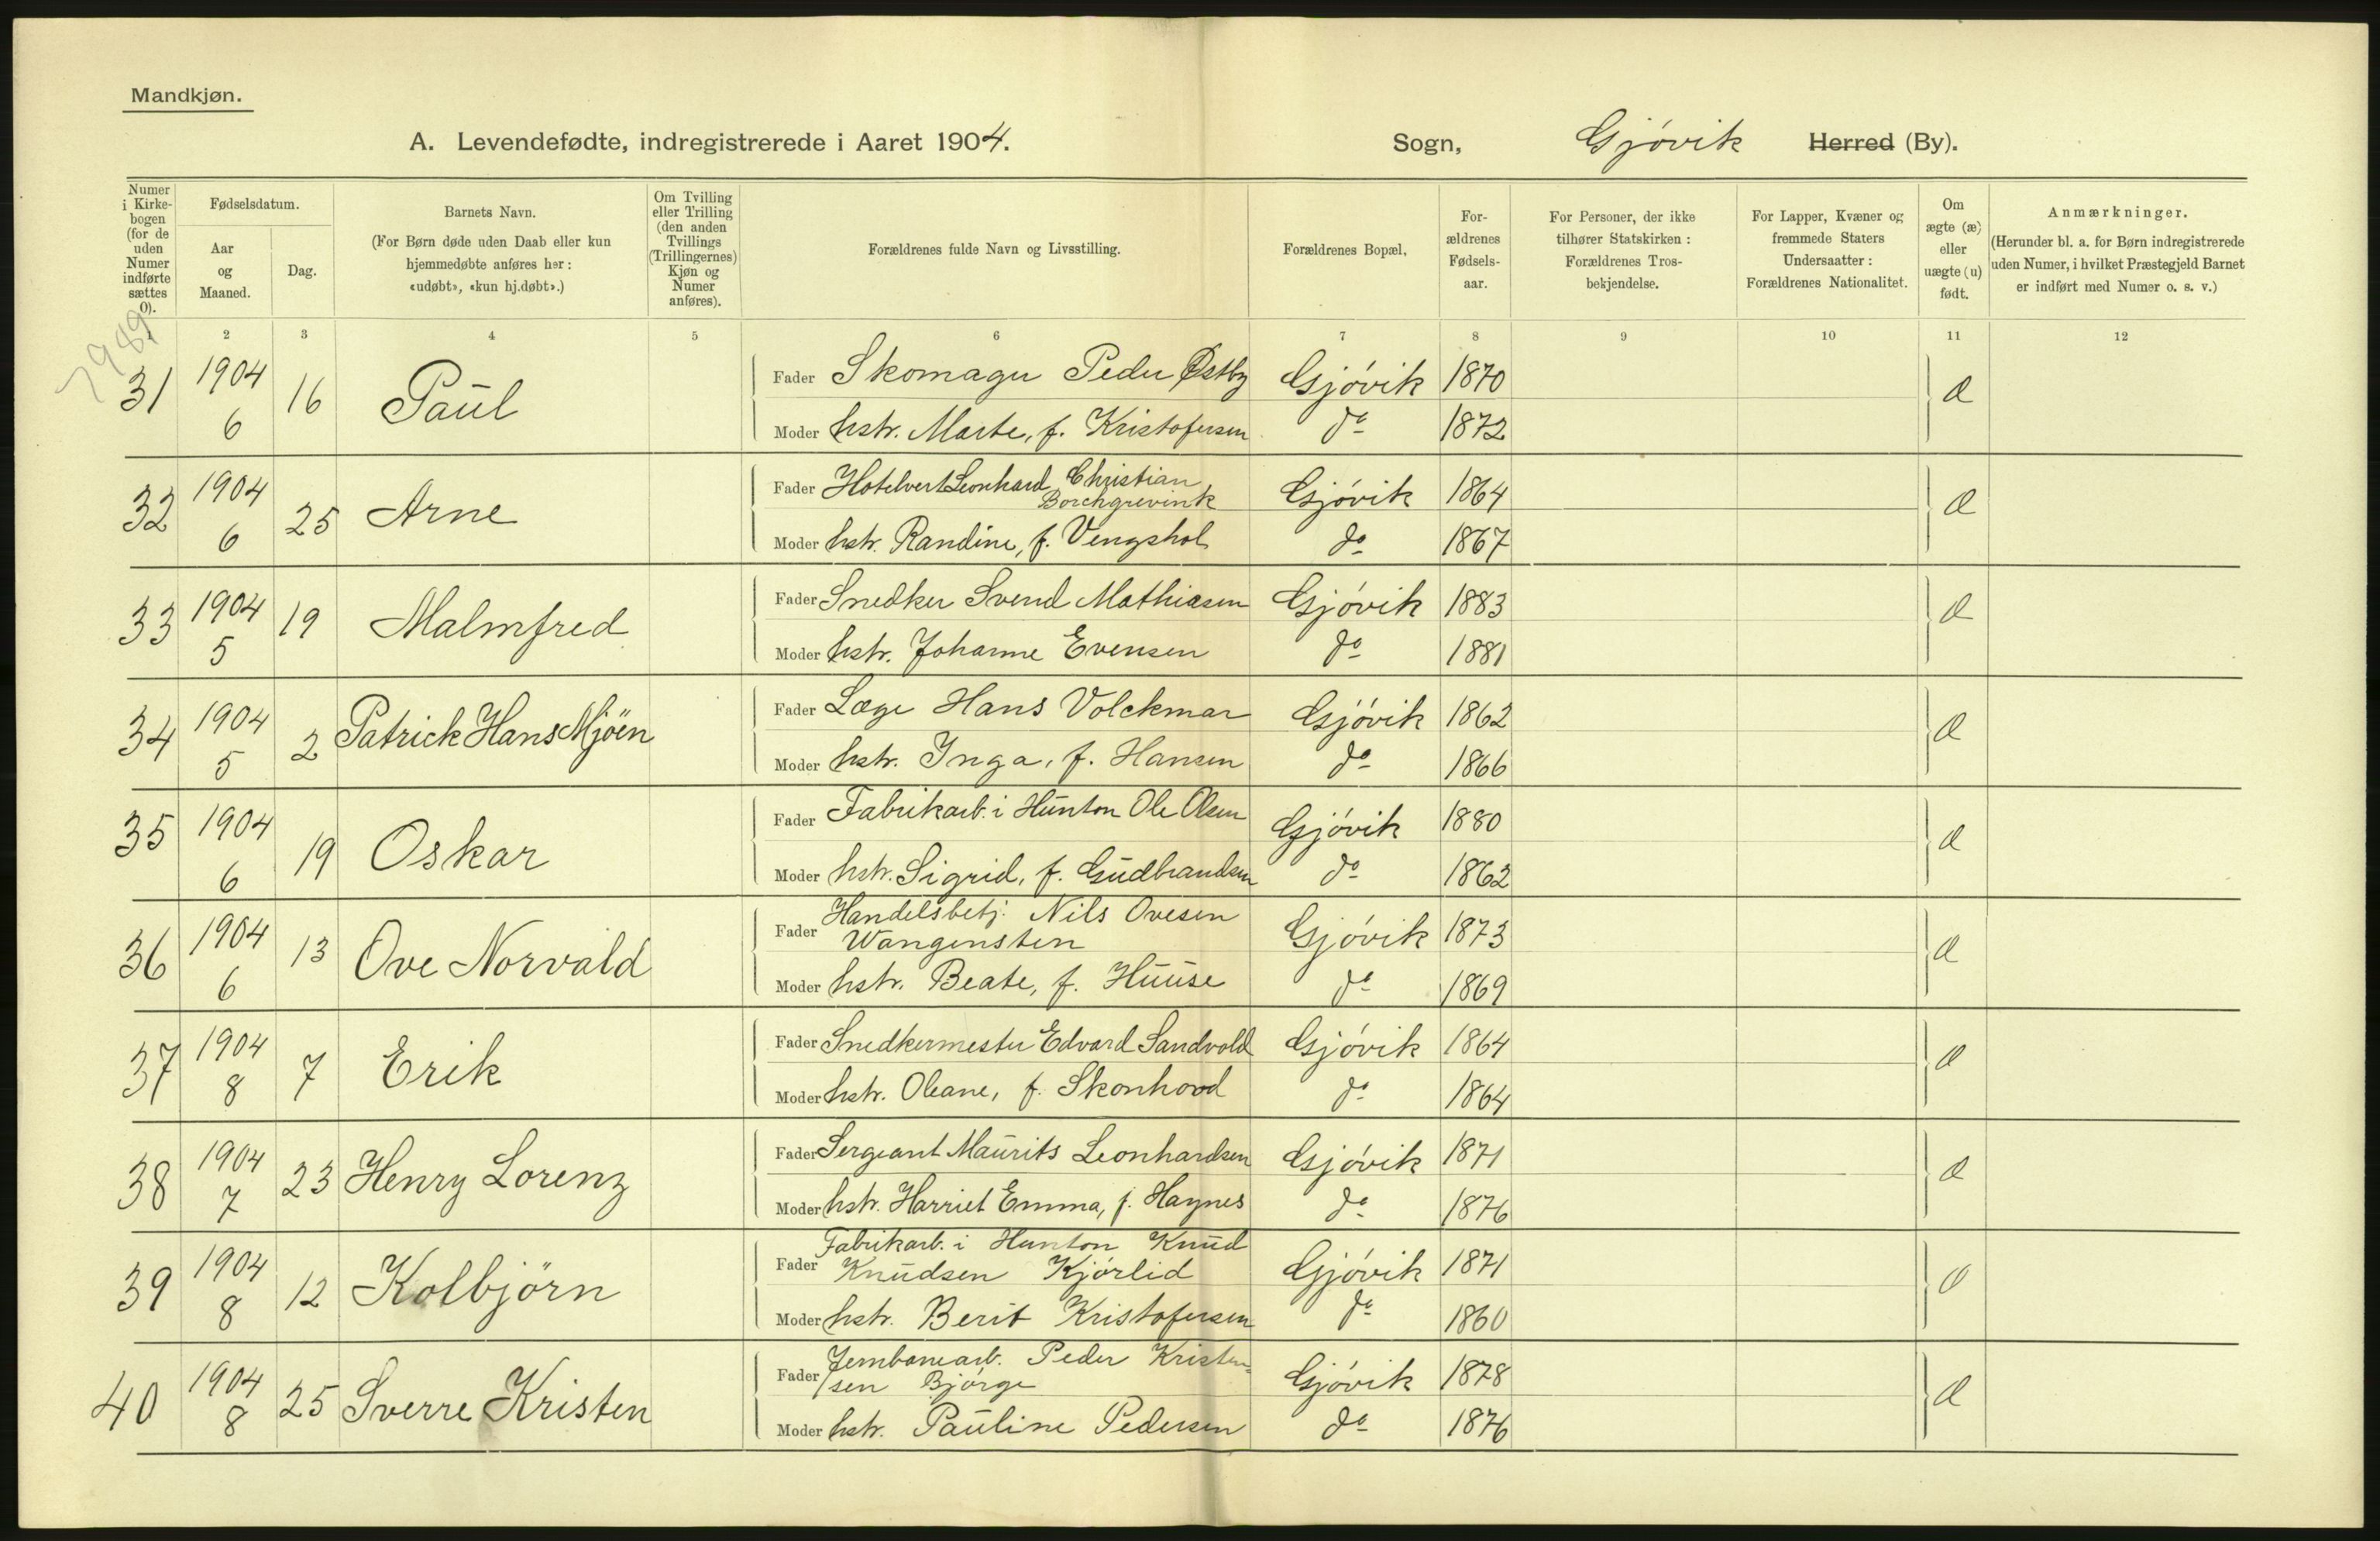 Mandkjøn.
A. Levendefødte, indregistrerede i Aaret 1904. Sogn, Gjøvik Herred (By).
Numer i Kirkebogen (for de uden Numer indførte sættes 0).
Fødselsdatum.
Aar og Maaned.
Dag.
Barnets Navn.
(For Børn døde uden Daab eller kun hjemmedøbte anføres her: «udøbt», «kun hj.døbt».)
Om Tvilling eller Trilling (den anden Tvillings (Trillingernes) Kjøn og Numer anføres).
Forældrenes fulde Navn og Livsstilling.
Forældrenes Bopæl,
Forældrenes Fødselsaar.
For Personer, der ikke tilhører Statskirken: Forældrenes Trosbekjendelse.
For Lapper, Kvæner og fremmede Staters Undersaatter: Forældrenes Nationalitet.
Om ægte (æ) eller uægte (u) født.
Anmærkninger.
(Herunder bl. a. for Børn indregistrerede uden Numer, i hvilket Præstegjeld Barnet er indført med Numer o. s. v.)
2 3 4 5 6 7 8 9 10 11 12
31 1904 6 16 Paul Fader Skomager Peder Østby Gjøvik 1870 æ
Moder hstr. Marte, f. Kristofersen do 1872
32 1904 6 25 Arne Fader Hotelvert Leonhard Christian Borchgrevink Gjøvik 1864 æ
Moder hstr. Randine, f. Vengshol do 1867
33 1904 5 19 Malmfred Fader Snedker Svend Mathiasen Gjøvik 1883 æ
Moder hstr. Johanne Evensen do 1881
34 1904 5 2 Patrick Hans Mjöen Fader Læge Hans Volckmar Gjøvik 1862 æ
Moder hstr. Inga, f. Hansen do 1866
35 1904 6 19 Oskar Fader Fabrikarb. i Hunton Ole Olsen Gjøvik 1880 æ
Moder hstr. Sigrid, f. Gudbrandsen do 1862
36 1904 6 13 Ove Norvald Fader Handelsbetj. Nils Ovesen Wangensten Gjøvik 1873 æ
Moder hstr. Beate, f. Huuse do 1869
37 1904 8 7 Erik Fader Snedkermester Edvard Sandvold Gjøvik 1864 æ
Moder hstr. Oleane, f. Skonhovd do 1864
38 1904 7 23 Henry Lorenz Fader Sergeant Maurits Leonhardsen Gjøvik 1871 æ
Moder hstr. Harriet Emma, f. Haynes do 1876
39 1904 8 12 Kolbjörn Fader Fabrikarb. i Hunton Knud Knudsen Kjørlid Gjøvik 1871 æ
Moder hstr. Berit Kristofersen do 1860
40 1904 8 25 Sverre Kristen Fader Jernbanearb. Peder Kristensen Bjørge Gjøvik 1878 æ
Moder hstr. Pauline Pedersen do 1876